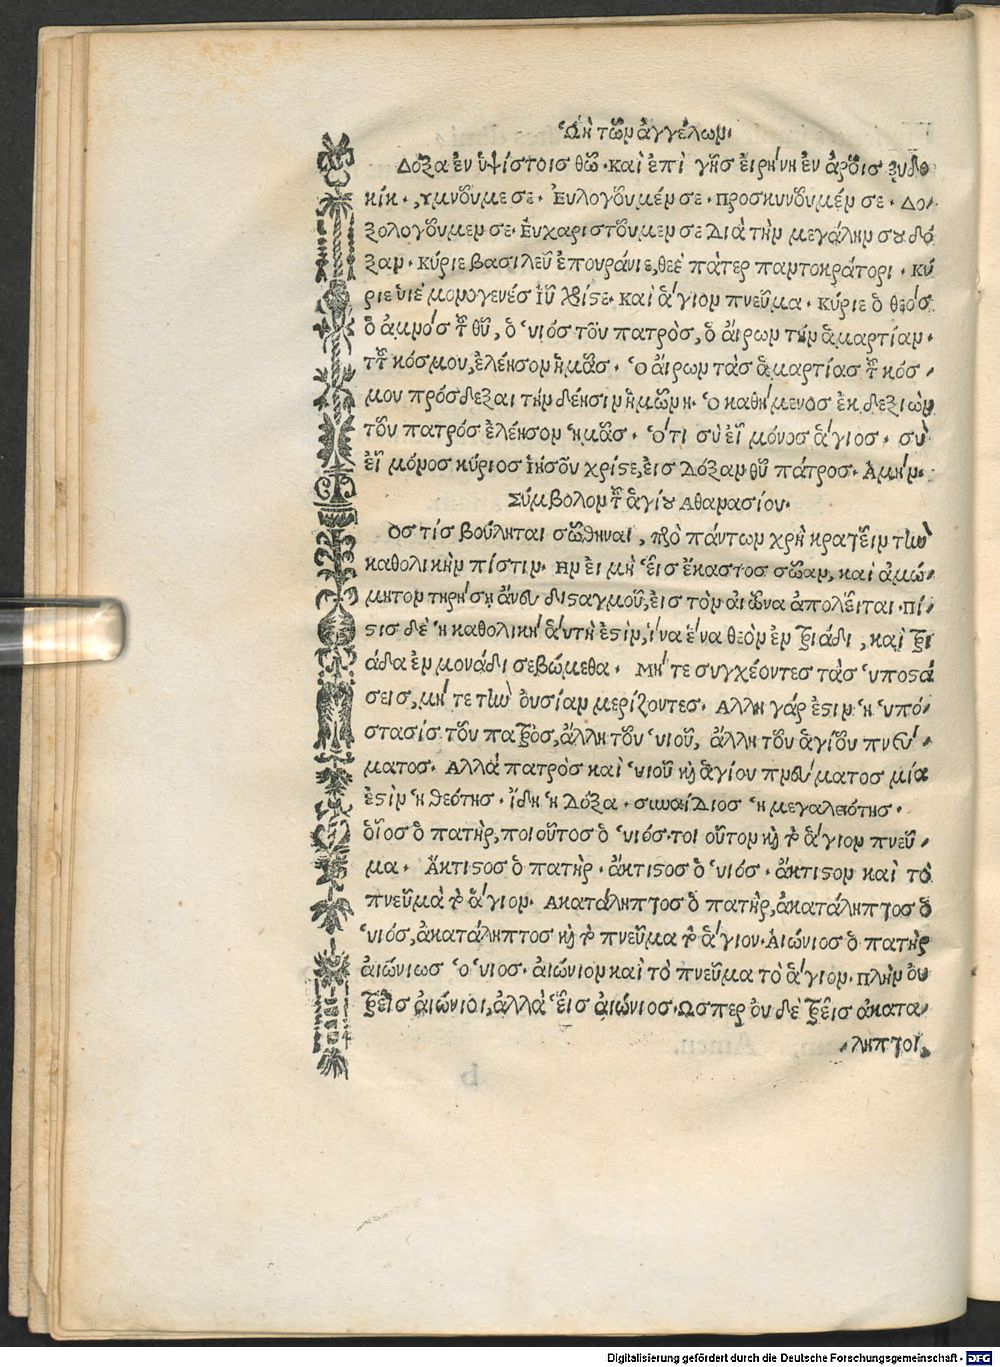 Ὠδὴ τῶν ἀγγέλων.
Δόξα ἐν ὑψίστοισ θῶ. καὶ ἐπὶ γῆσ ἐιρήνη ἐν ἀν̅οισ ἐυδο
κία. ὑμνοῦμε σε. Ἐυλογοῦμέν σε. προσκυνοῦμέν σε. Δο-
ξολογοῦμεν σε. Ἐυχαριστοῦμεν σε Διὰ τὴν μεγάλην σου δό
ξαν. κύριε βασιλεῦ ἐπουράνιε, θεέ πάτερ παντοκράτορι. κύ
ριε ὑιέ μονογενές ἰῦ χριστέ. καὶ ἅγιον πνεῦμα. κύριε ὁ θεόσ
ὁ ἀμνόσ τοῦ θῦ, ὁ ὑιόσ τοῦ πατρὸσ, ὁ ἄιρων τὴν ἁμαρτίαν.
τοῦ κόσμου, ἐλέησον ἡμᾶσ. Ὁ ἄιρων τὰσ ἁμαρτίασ τοῦ κόσ-
μου πρόσδεξαι τὴν δέησιν ἡμῶν. Ὁ καθήμενοσ ἐκ δεξιῶν
τοῦ πατρόσ ἐλέησον ἡμᾶσ. Ὅτι σὺ εἶ μόνοσ ἅγιοσ. σὺ
εἶ μόνοσ κύριοσ ἰησοῦν χριστέ, ἐισ Δόξαν θῦ πάτροσ. Ἀμήν.
Σύμβολον τοῦ ἁγίου Αθανασίου.
Οσ τίσ βούληται σωθῆναι, πρὸ πάντων χρὴ κρατεῖν τὴν
καθολικὴν πίστιν. Ην ει μὴ εἷσ ἕκαστοσ σῶαν, καὶ ἀμώ-
μητον τηρήση ἄνευ δισταγμοῦ, ἐισ τὸν ἀιῶνα ἀπολεῖται. πί-
στισ δὲ ἡ καθολικὴ ἅυτη ἐστὶν, ἵνα ἕνα θεὸν ἐν τριάδι, καὶ τρι
άδα ἐν μονάδι σεβώμεθα. Μήτε συγχέοντες τὰσ ὑποστά
σεισ, μήτε τὴν ὀυσίαν μερίζοντεσ. Αλλη γάρ ἐστιν ἡ ὑπό-
στασίσ τοῦ πατρὸσ, ἄλλη τοῦ ὑιοῦ, ἄλλη τοῦ ἁγίου πνεύ-
ματοσ. Αλλὰ πατρὸσ καὶ ὑιοῦ καὶ ἁγίου πνεύματοσ μία
ἐστὶν ἡ θεότησ. ἴση ἡ Δόξα. συναίδιοσ ἡ μεγαλειότησ.
ὁῖοσ ὁ πατὴρ, τοιοῦτοσ ὁ ὑιόσ. τοιοῦτον καὶ τὸ ἅγιον πνεῦ-
μα. Ἄκτιστοσ ὁ πατὴρ. ἄκτιστοσ ὁ ὑιόσ. ἄκτιστον καὶ τὸ
πνεῦμα τὸ ἅγιον. Ακατάληπτοσ ὁ πατὴρ, ἀκατάληπτοσ ὁ
ὑιόσ, ἀκατάληπτοσ καὶ τὸ πνεῦμα τὸ ἅγιον. Ἀιώνιοσ ὁ πατὴρ
ἀιώνιωσ ὁ ὑιοσ. ἀιώνιον καὶ τὸ πνεῦμα τὸ ἅγιον. πλὴν ὀυ
τρεῖσ ἀιώνιοι, ἀλλὰ εἷσ ἀιώνιοσ. Ωσπερ ὀυ δὲ τρεῖσ ἀκατα-
-ληπτοι,
Digitalisierung gefördert durch die Deutsche Forschungsgemeinschaft - DFG